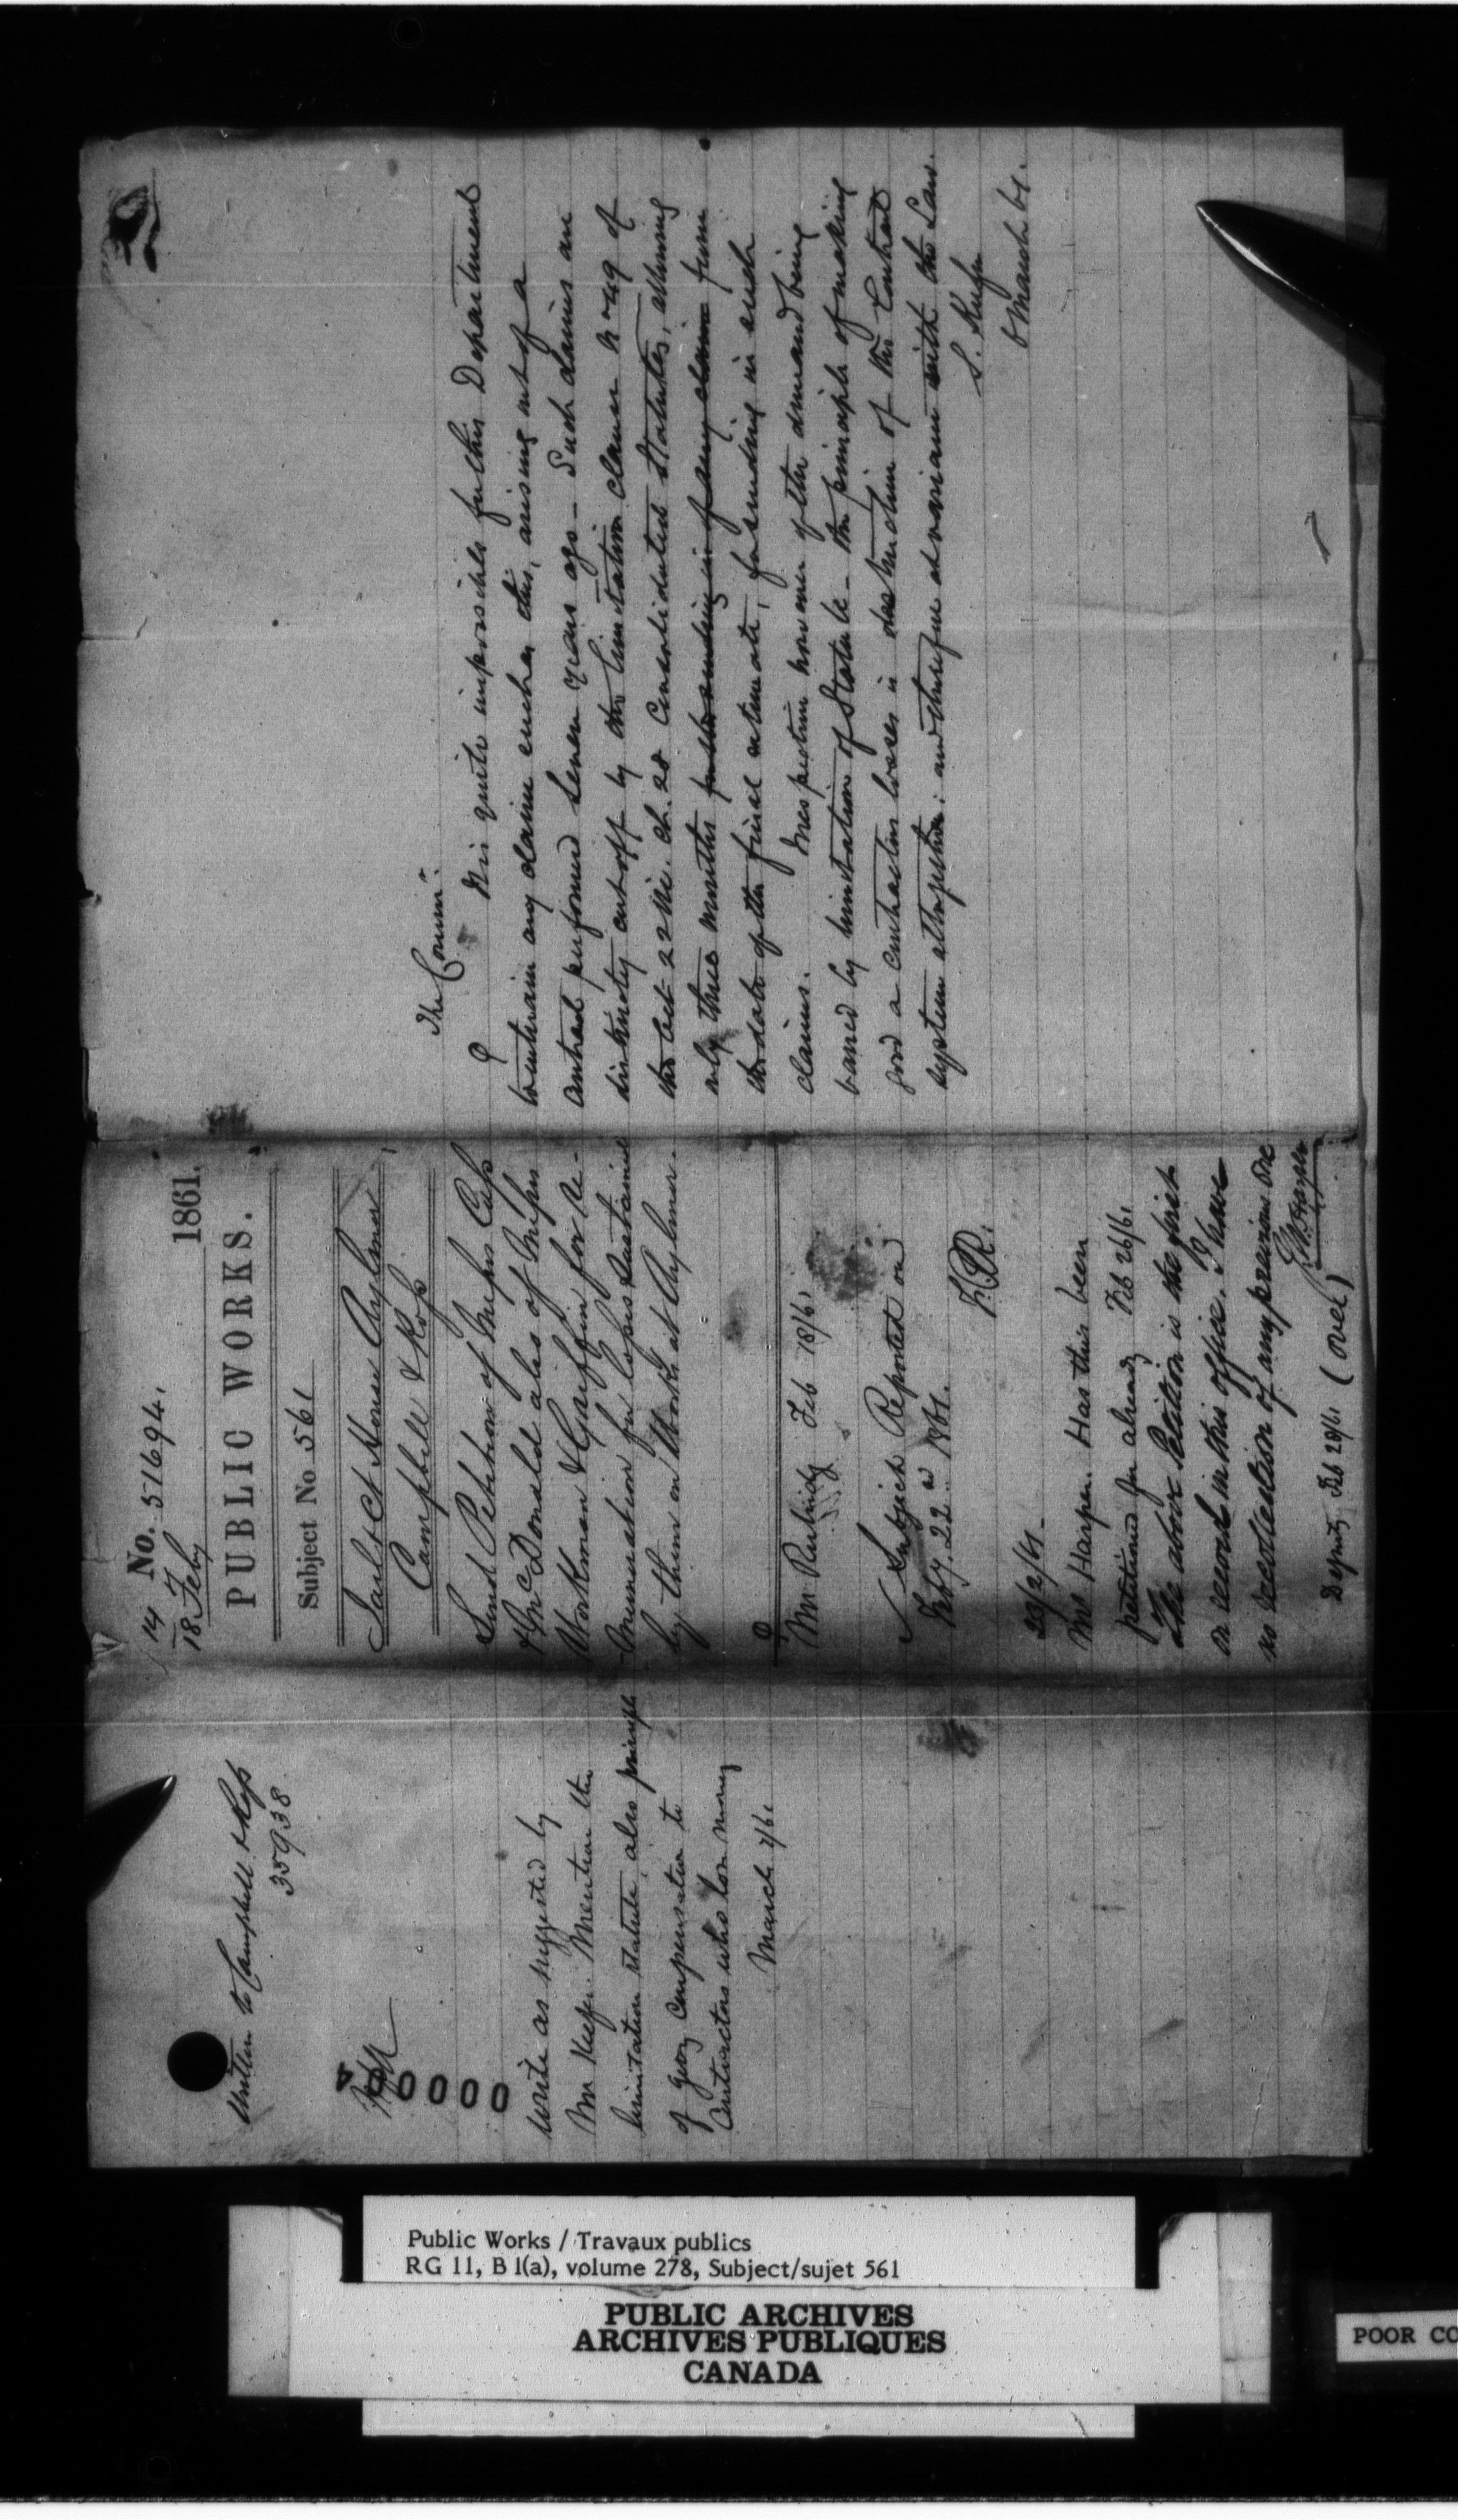 Written to Campbell & Ross
35938
000004
Write as suggested by
Mr Keefer. Mention the
limitation statute, also principle
of giving compensation to
Contractors who lose money
March 7/61
14 No. 51694.
18 Feby 1861.
PUBLIC WORKS.
Subject No 561
Jail & Ct House Aylmer
Campbell & Ross
Send Petition of Messrs
& McDonald also of Messrs
Workman & Griffin for Re-
muneration for losses sustained
by them on Works at Aylmer.
Mr Rubidge Feb 18/61
Subject Reported on
Feby. 22d 1861.
F.P.R.
23/2/61
Mr Harper. Has this been
petitioned for already Feb 26/61
The above Petition is the first
on record in this office. I have
no recollection of any previous one
Deputy Feb 28/61 (over)
The Commr.
It is quite impossible for this Department
to entertain any claim such as this, arising out of a
contract performed seven years ago — Such claims are
distinctly cut off by the limitation clause of
the Act 22 Vic. ch. 28 Consolidated Statutes, allowing
only three months for the sending in of any claim from
the date of the final estimate, for sending in such
claims. Irrespective however of the demand being
barred by limitation of Statute — the principle of making
good a contractors losses is destructive of the Contract
system altogether; and therefore at variance with the Law.
S. Keefer
6 March 61.
Public Works / Travaux publics
RG 11, B 1(a), volume 278, Subject/sujet 561
PUBLIC ARCHIVES
ARCHIVES PUBLIQUES
CANADA
POOR CO